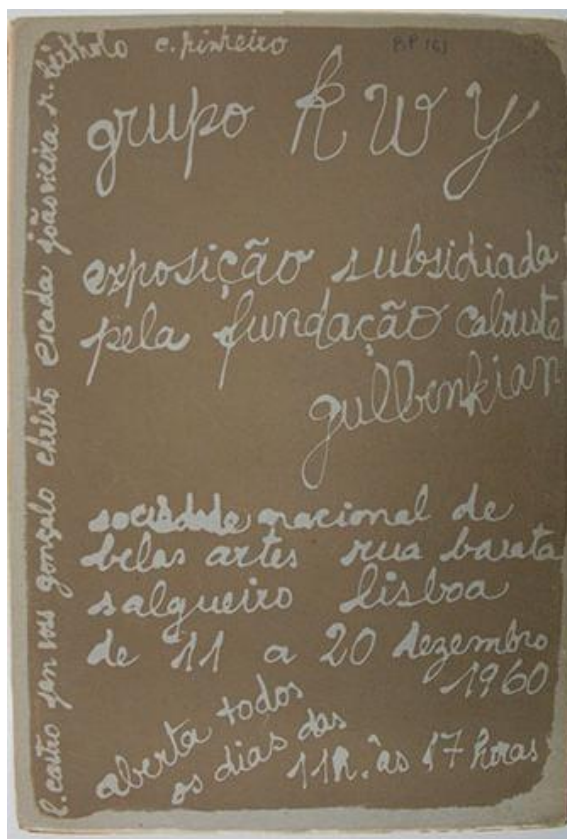 l. castro jan voss gonçalo christo escada joão vieira r. bértholo c. pinheiro
BP 161
grupo KWY
exposição subsidiada
pela fundação calouste
gulbenkian
sociedade nacional de
belas artes rua barata
salgueiro lisboa
de 11 a 20 dezembro
1960
aberta todos
os dias das
11h. às 17 horas